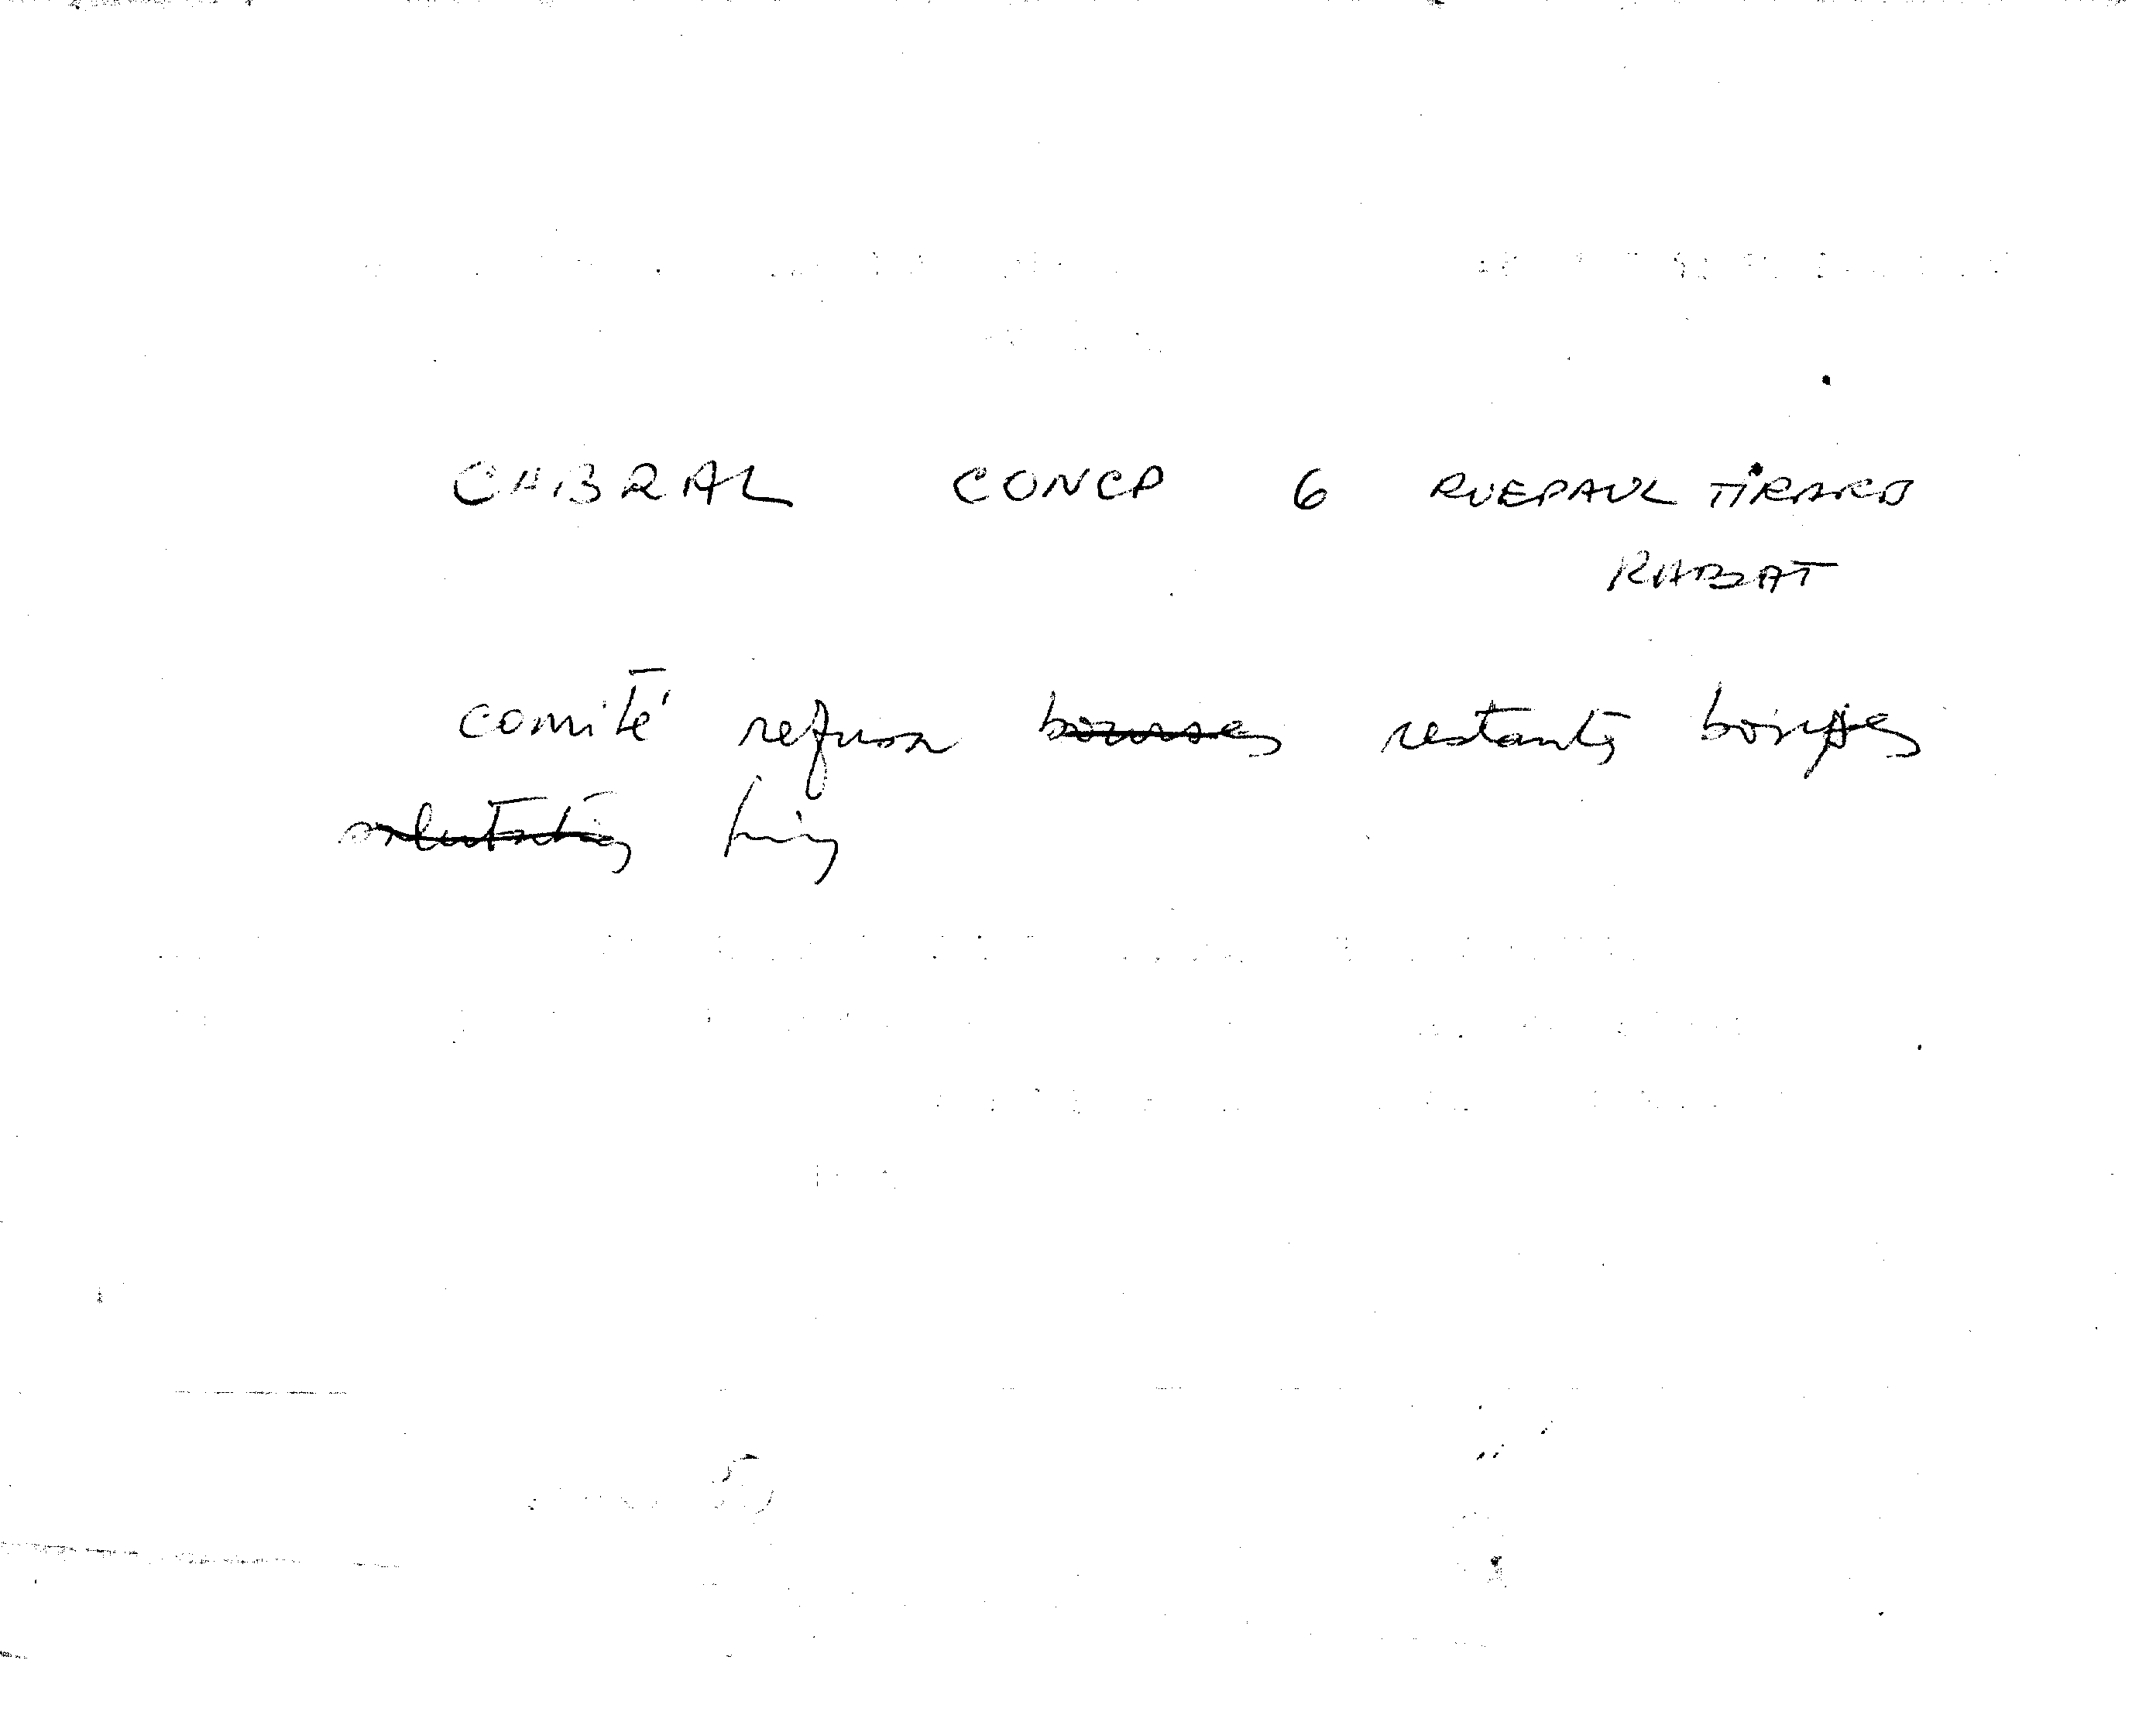 CABRAL CONCP 6 RUEPAUL TIRARD
RABAT
comité refusa bourses restants bourses
salutations